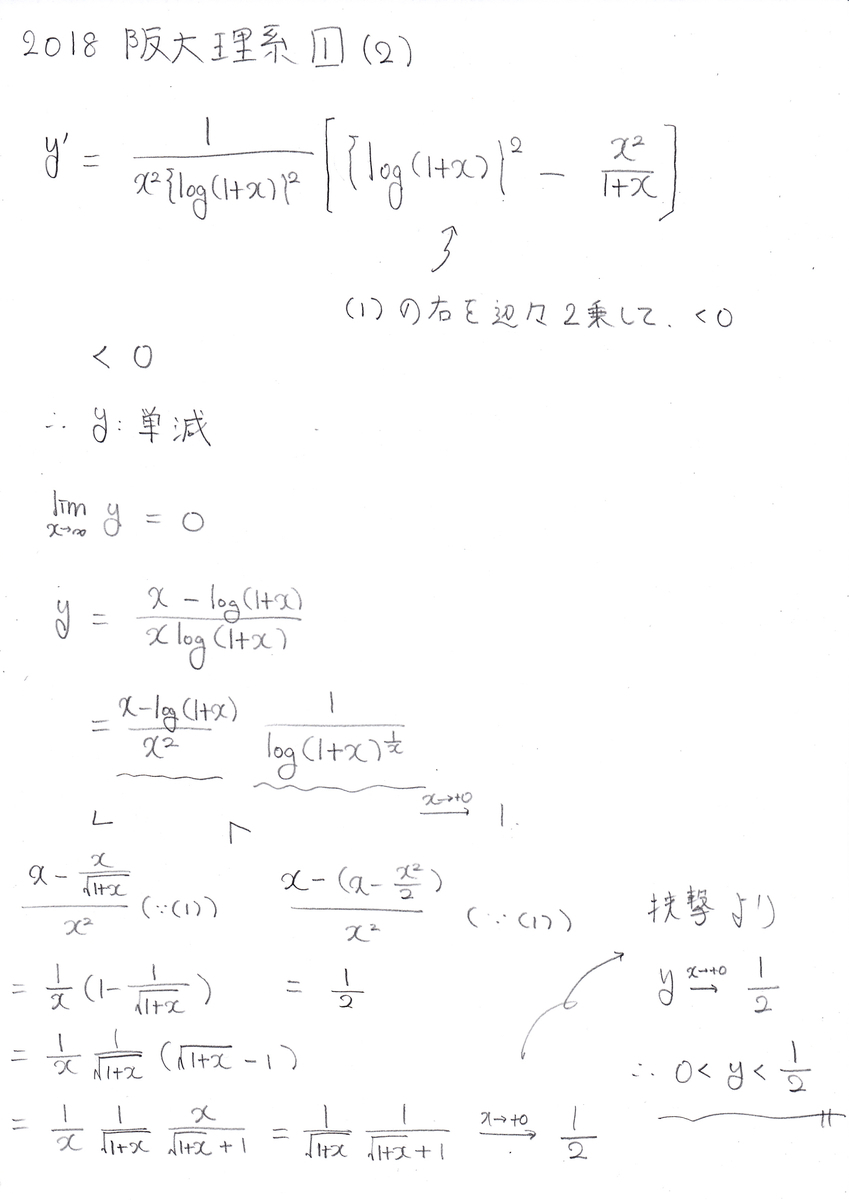 2018 阪大理系 1 (2)
y' = 1/(x²{log(1+x)}²) [{log(1+x)}² − x²/(1+x)]
(1)の右を辺々2乗して、<0
< 0
∴ y: 単減
lim_{x→∞} y = 0
y = (x − log(1+x))/(x log(1+x))
= (x − log(1+x))/x² 1/(log(1+x)^{1/x}) →^{x→+0} 1.
(x − x/√(1+x))/x² (∵(1)) (x − (x − x²/2))/x² (∵(1)) 挟撃より
= 1/x (1 − 1/√(1+x)) = 1/2 y →^{x→+0} 1/2
= 1/x 1/√(1+x) (√(1+x) − 1) ∴ 0 < y < 1/2
= 1/x 1/√(1+x) x/(√(1+x) + 1) = 1/√(1+x) 1/(√(1+x) + 1) →^{x→+0} 1/2